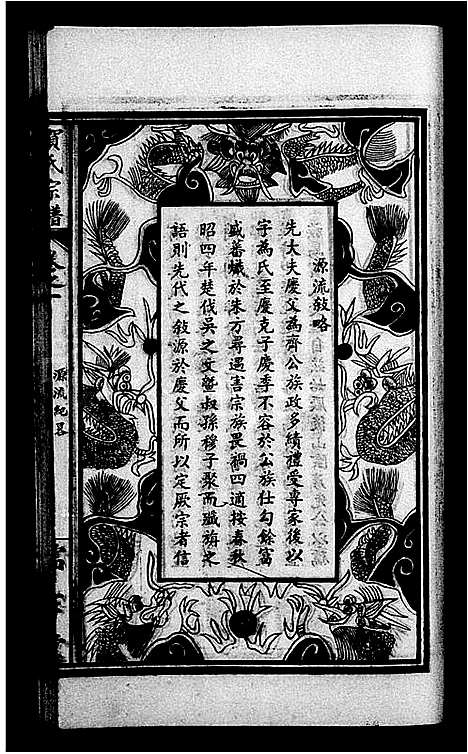 源流敍略
先大夫慶父為齊公族政多績禮受專家後以
字為氏至慶克子慶季不容於公族仕勾餘富
盛蕃蟻於朱方尋遇害宗族畏禍四適按春秋
昭四年楚伐吳之文暨叔孫穆子聚而殲旃之
語則先代之敍源於慶父而所以定厥宗者信
氏宗譜
源流紀畧